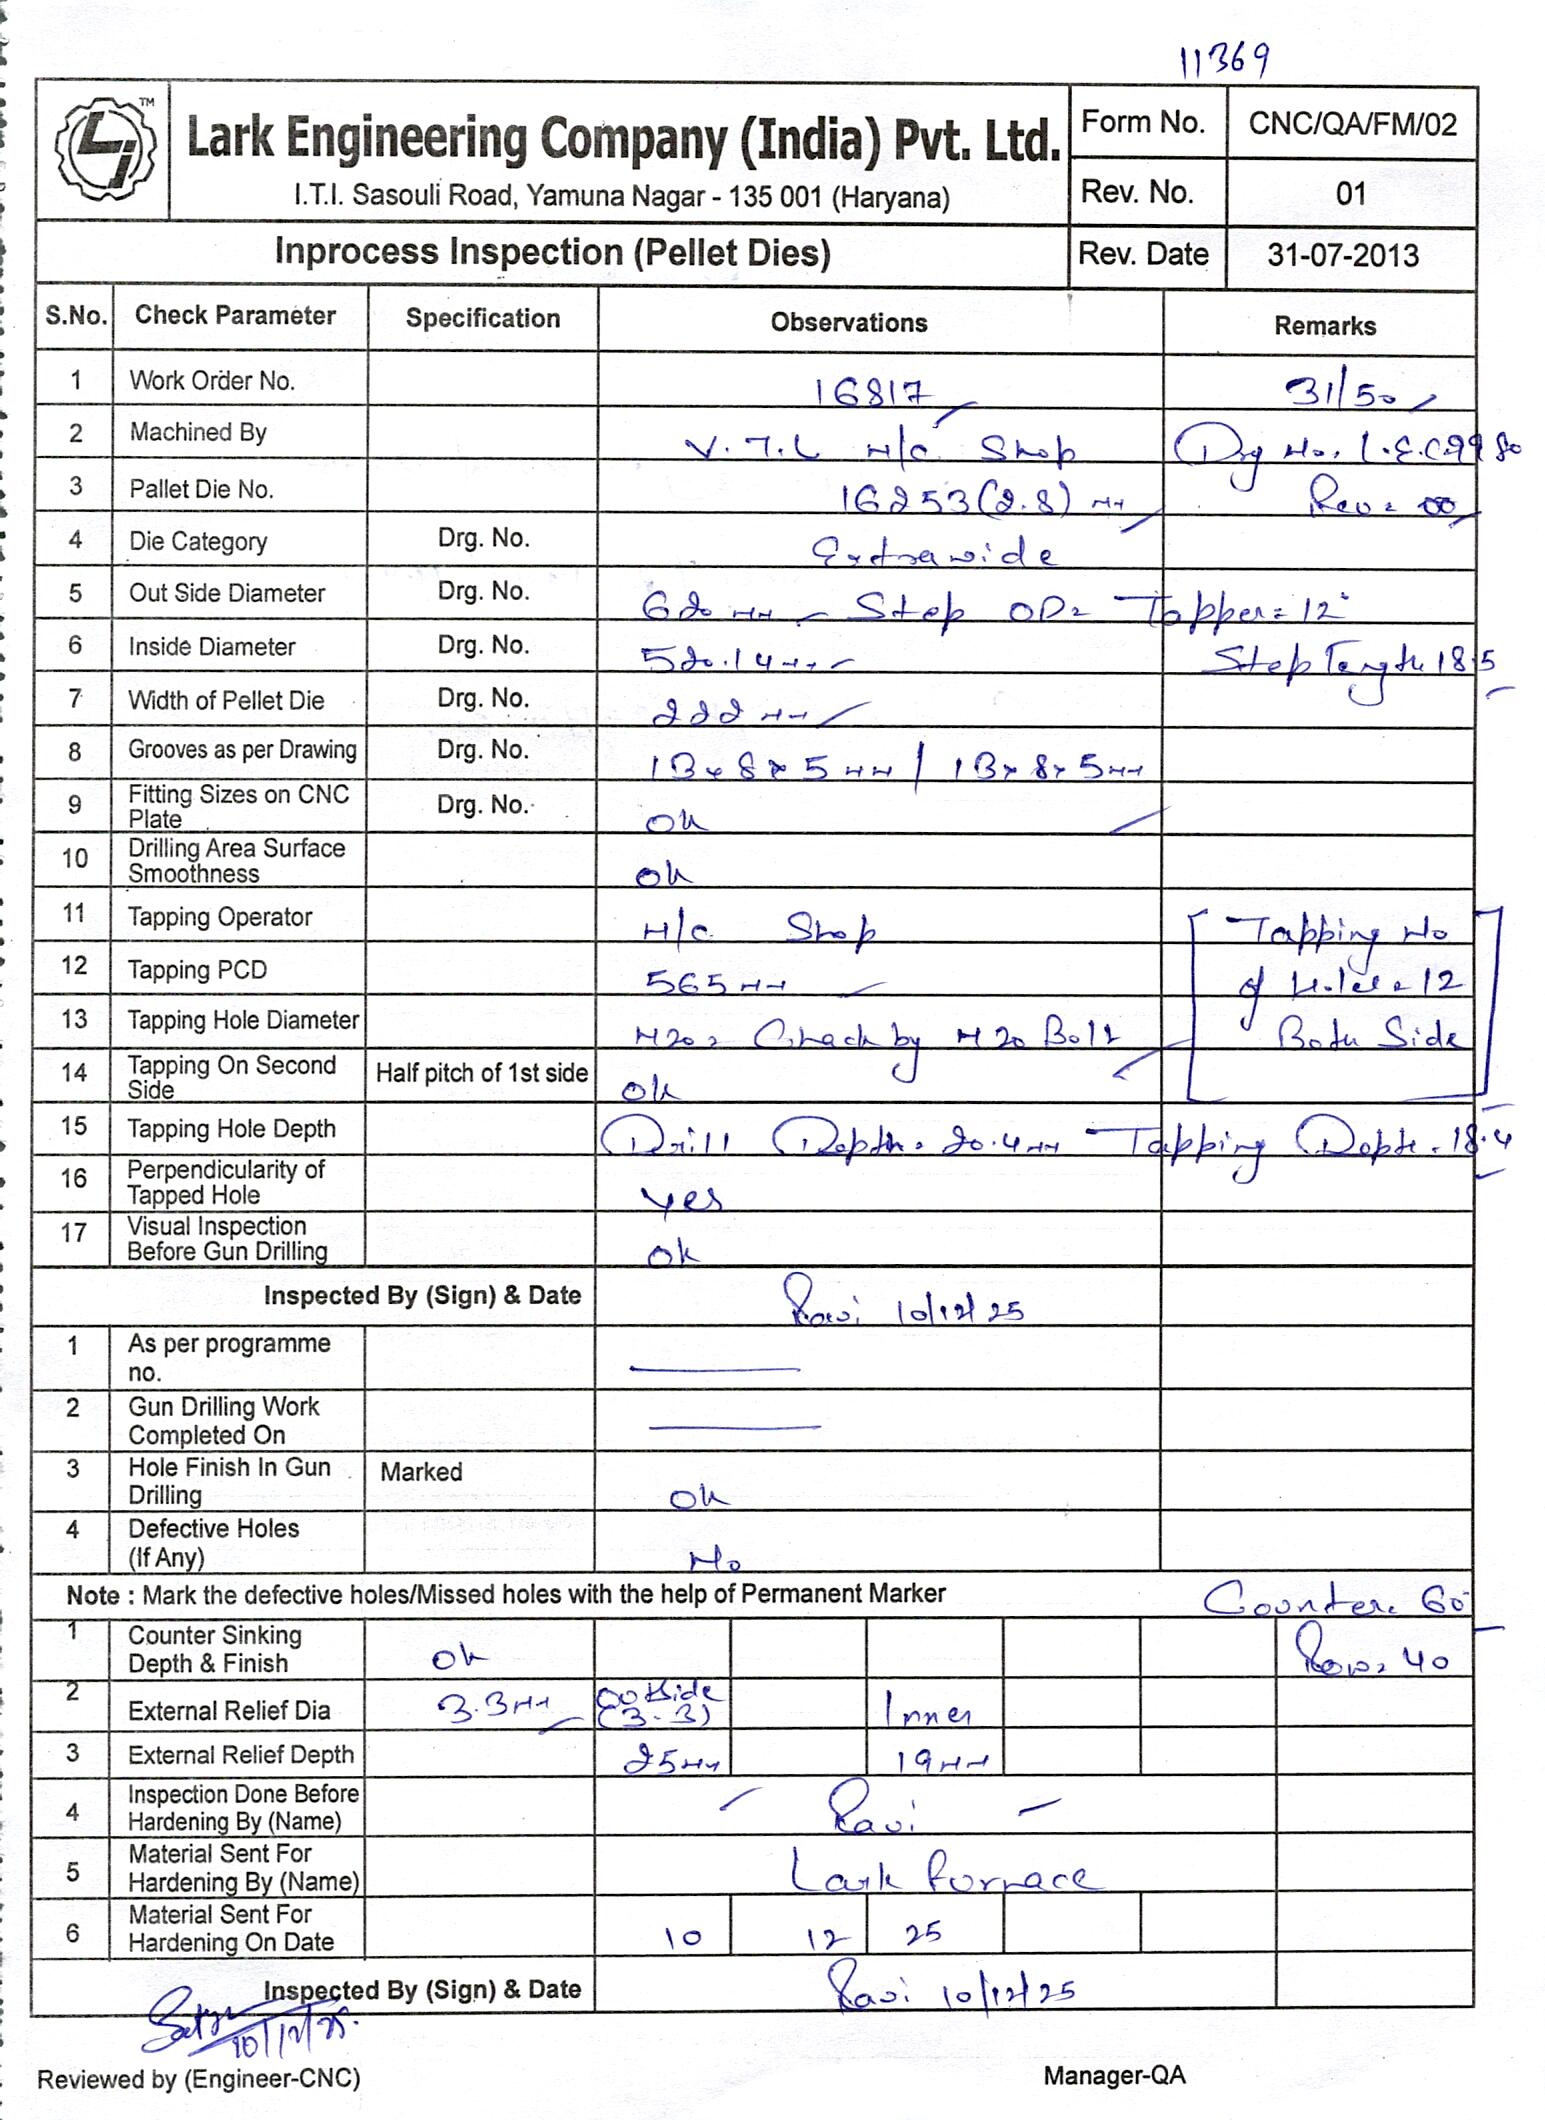 11369
TM
Lark Engineering Company (India) Pvt. Ltd.
I.T.I. Sasouli Road, Yamuna Nagar - 135 001 (Haryana)
Form No. CNC/QA/FM/02
Rev. No. 01
Inprocess Inspection (Pellet Dies) Rev. Date 31-07-2013
S.No. Check Parameter Specification Observations Remarks
1 Work Order No. 16817 31/50
2 Machined By V.T.L M/c Shop Drg No. L.E.C9980
3 Pallet Die No. 16253 (2.8) mm Rev = 00
4 Die Category Drg. No. Extrawide
5 Out Side Diameter Drg. No. 620 mm - Step OD = Tapper = 12°
6 Inside Diameter Drg. No. 520.14 mm Step Length 18.5
7 Width of Pellet Die Drg. No. 222 mm
8 Grooves as per Drawing Drg. No. 13 x 8 x 5 mm / 13 x 8 x 5 mm
9 Fitting Sizes on CNC Plate Drg. No. ok
10 Drilling Area Surface Smoothness ok
11 Tapping Operator M/c Shop Tapping No
12 Tapping PCD 565 mm of Holes = 12
13 Tapping Hole Diameter M20 = Check by M20 Bolt Both Side
14 Tapping On Second Side Half pitch of 1st side ok
15 Tapping Hole Depth Drill Depth = 20.4 mm Tapping Depth = 18.4
16 Perpendicularity of Tapped Hole yes
17 Visual Inspection Before Gun Drilling ok
Inspected By (Sign) & Date Ravi 10/12/25
1 As per programme no.
2 Gun Drilling Work Completed On
3 Hole Finish In Gun Drilling Marked ok
4 Defective Holes (If Any) No
Note : Mark the defective holes/Missed holes with the help of Permanent Marker Counter = 60°
1 Counter Sinking Depth & Finish ok Row = 40
2 External Relief Dia 3.3 mm Outside (3.3) Inner
3 External Relief Depth 25 mm 19 mm
4 Inspection Done Before Hardening By (Name) Ravi
5 Material Sent For Hardening By (Name) Lark furnace
6 Material Sent For Hardening On Date 10 12 25
Inspected By (Sign) & Date Ravi 10/12/25
10/12/25.
Reviewed by (Engineer-CNC) Manager-QA